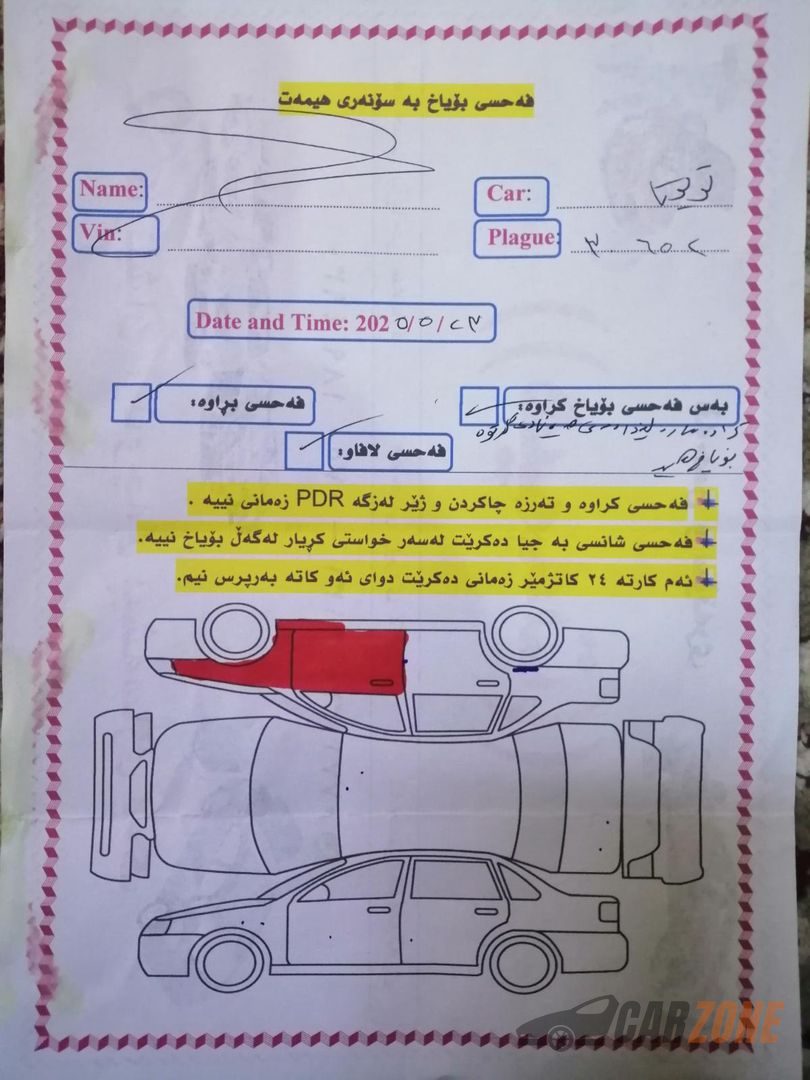 فەحسی بۆیاخ بە سۆنەری هیمەت
Name:
Car: تویوتا
Vin:
Plague:
Date and Time: 202
بەس فەحسی بۆیاخ کراوە:
فەحسی براوە:
فەحسی لافاو:
فەحسی کراوە و تەرزە چاکردن و ژێر لەزگە PDR زەمانی نییە .
فەحسی شانسی بە جیا دەکرێت لەسەر خواستی کڕیار لەگەڵ بۆیاخ نییە.
ئەم کارتە ٢٤ کاتژمێر زەمانی دەکرێت دوای ئەو کاتە بەرپرس نیم.
CARZONE